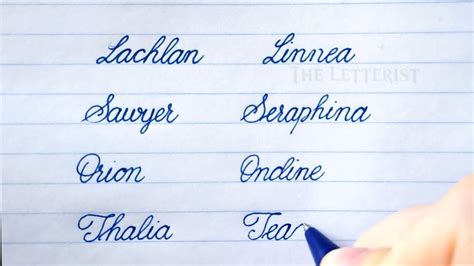 Lachlan Linnea
THE LETTERIST
Sawyer Seraphina
Orion Ondine
Thalia Tea